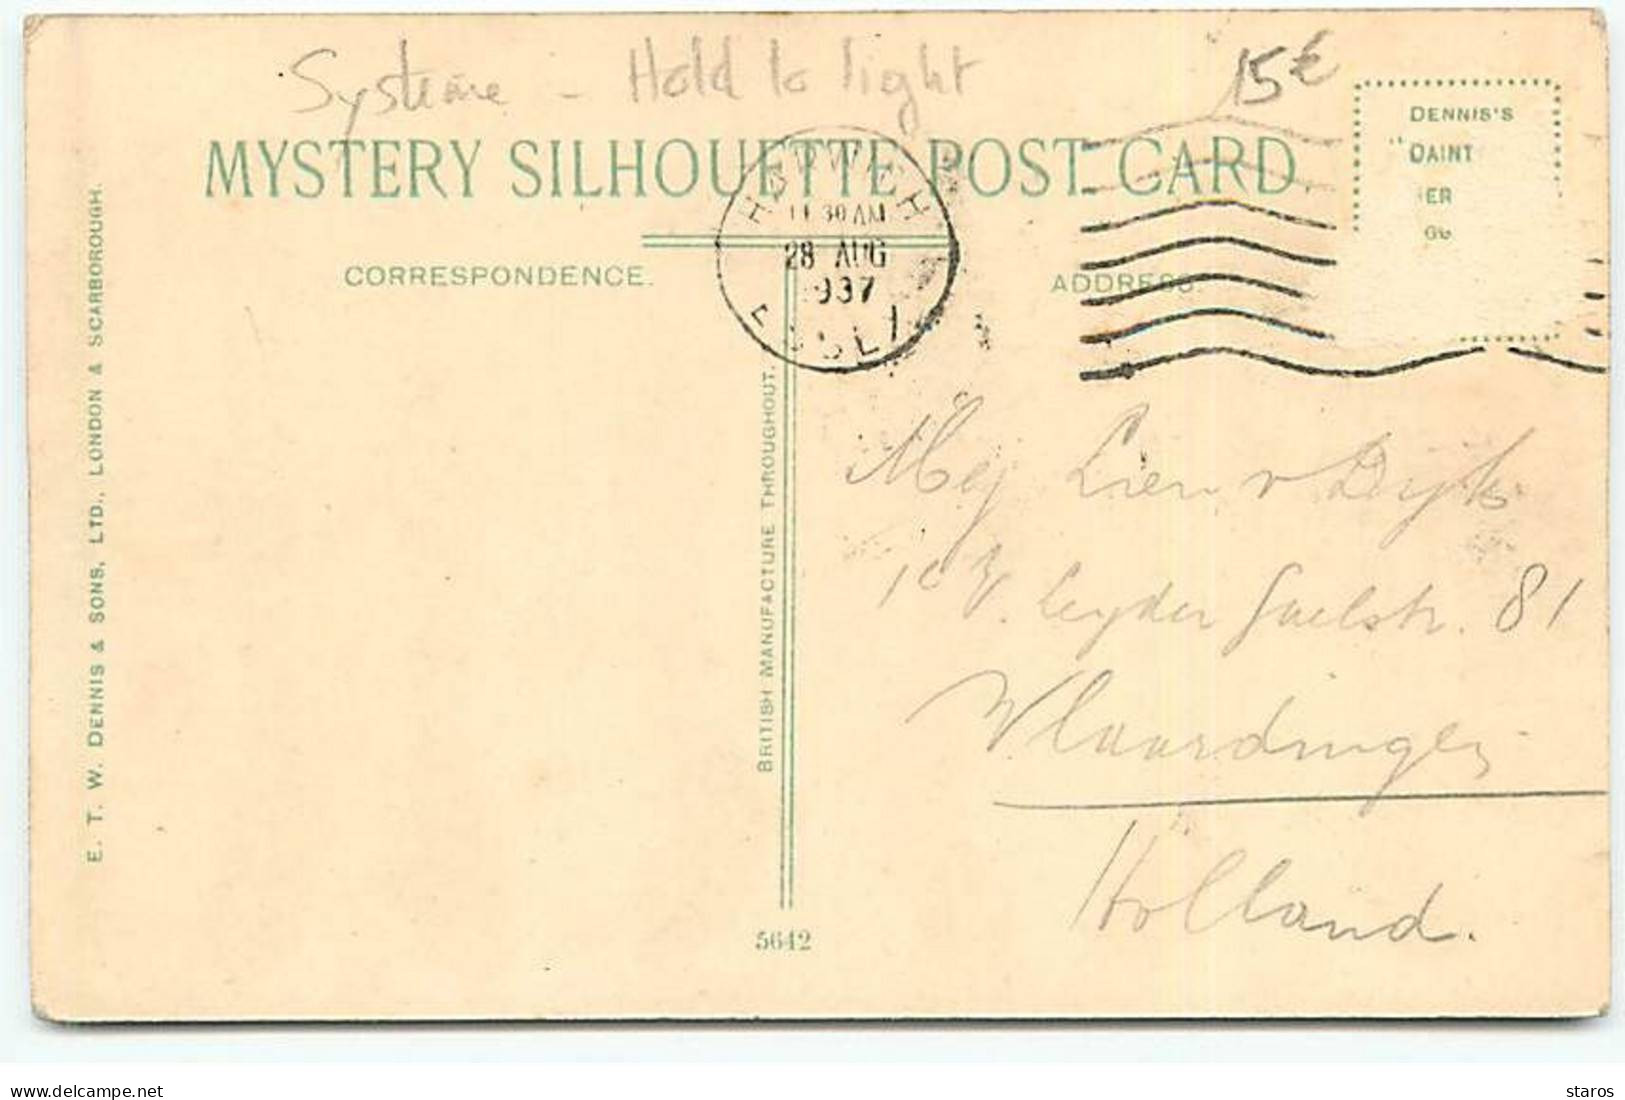 Systeme - Hold to light
15€
MYSTERY SILHOUETTE POST CARD
DENNIS'S
"DAINT
ER
HARWICH
11 30 AM
28 AUG
1937
CORRESPONDENCE.
ADDRESS
E. T. W. DENNIS & SONS, LTD., LONDON & SCARBOROUGH.
BRITISH MANUFACTURE THROUGHOUT.
Mej Lien v Dijk
81
Vlaardingen
Holland.
5642
delcampe.net
staros